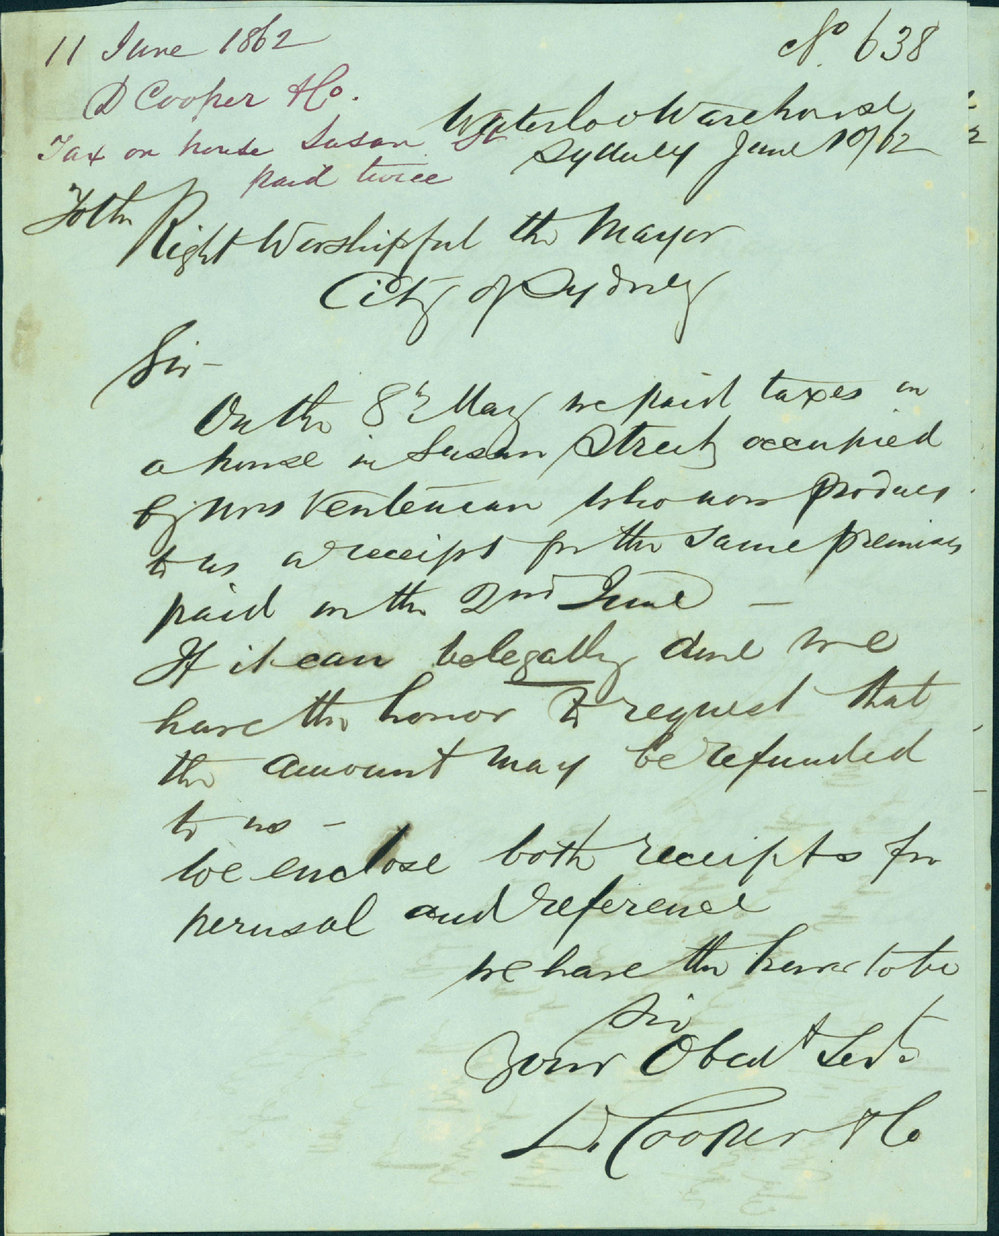 11 June 1862
D Cooper & Co.
Tax on house Susan St
paid twice
No. 638
Waterloo Warehouse
Sydney June 10/62
To the
Right Worshipful the Mayor
City of Sydney
Sir –
On the 8th May we paid taxes on
a house in Susan Street occupied
by Mrs who now produces
to us a receipt for the same premises
paid on the 2nd June –
If it can be legally done we
have the honor to request that
the amount may be refunded
to us –
We enclose both receipts for
perusal and reference
we have the honor to be
Sir
Your Obedt Servts
D. Cooper & Co